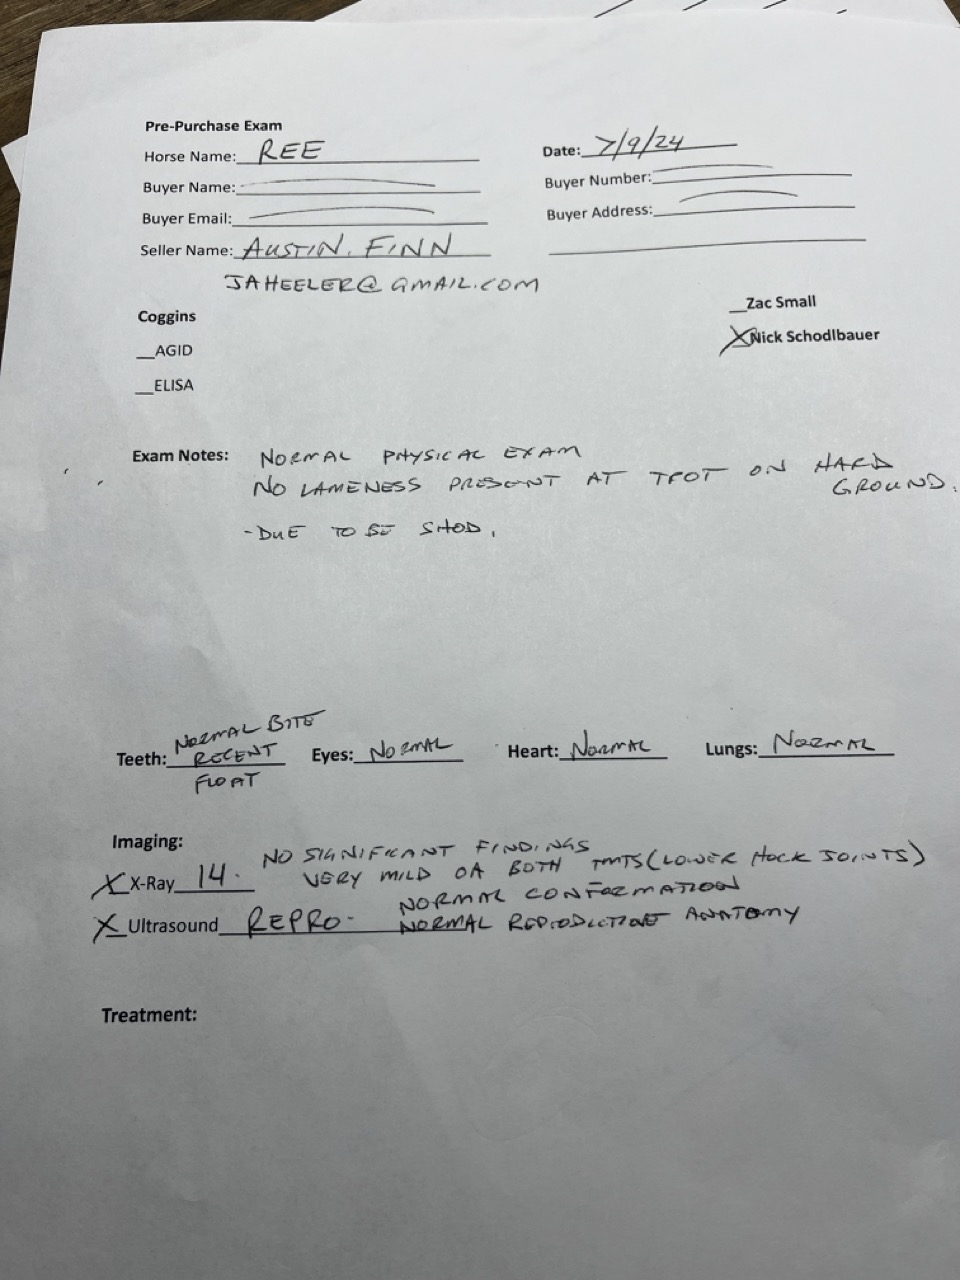 Pre-Purchase Exam
Horse Name: REE
Date: 7/9/24
Buyer Name:
Buyer Number:
Buyer Email:
Buyer Address:
Seller Name: AUSTIN. FINN
JAHEELER@GMAIL.COM
Coggins
__AGID
__ELISA
__Zac Small
X Nick Schodlbauer
Exam Notes: NORMAL PHYSICAL EXAM
NO LAMENESS PRESENT AT TROT ON HARD
GROUND.
-DUE TO BE SHOD.
Teeth: NORMAL BITE
RECENT
FLOAT
Eyes: NORMAL
Heart: NORMAL
Lungs: NORMAL
Imaging:
X X-Ray 14. NO SIGNIFICANT FINDINGS
VERY MILD OA BOTH TMTS (LOWER HOCK JOINTS)
X Ultrasound REPRO- NORMAL CONFORMATION
NORMAL REPRODUCTIVE ANATOMY
Treatment: